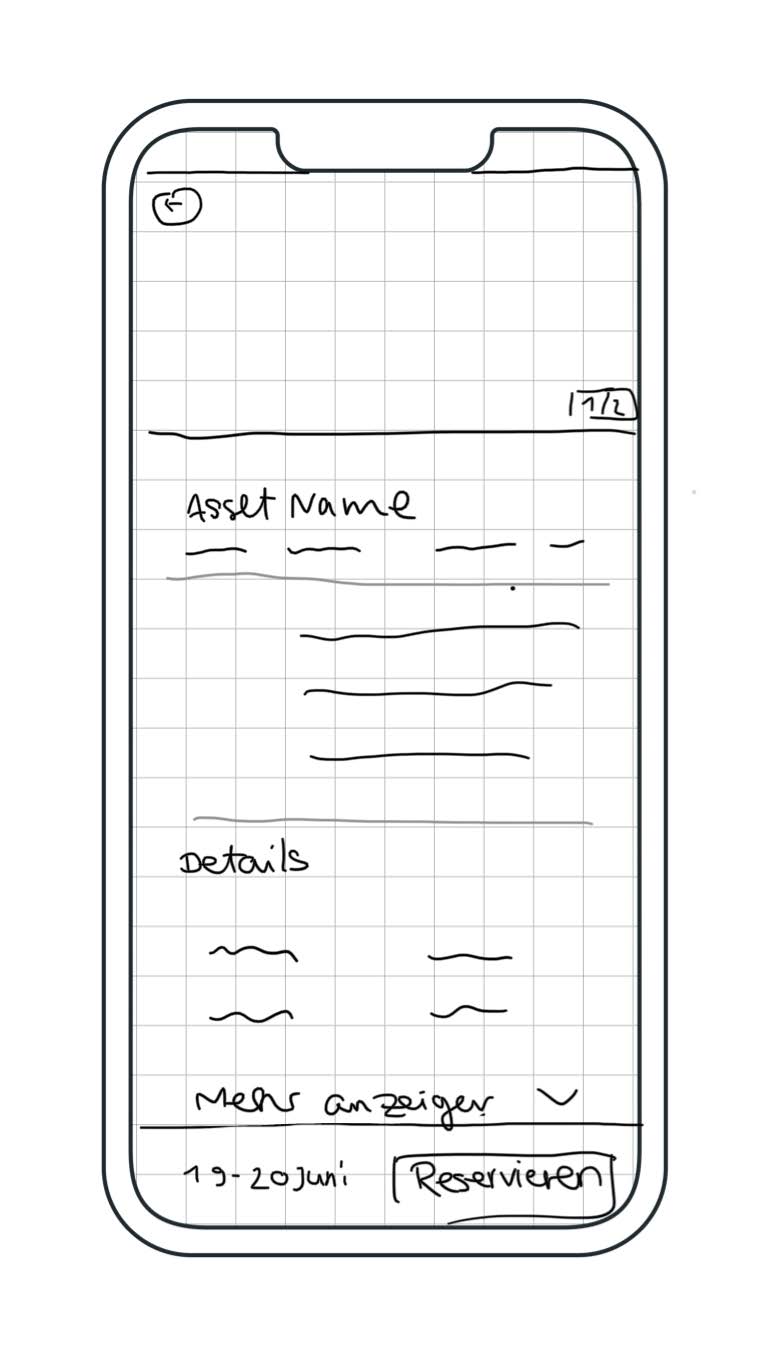 1/2
Asset Name
Details
Mehr anzeigen
19-20 Juni
Reservieren